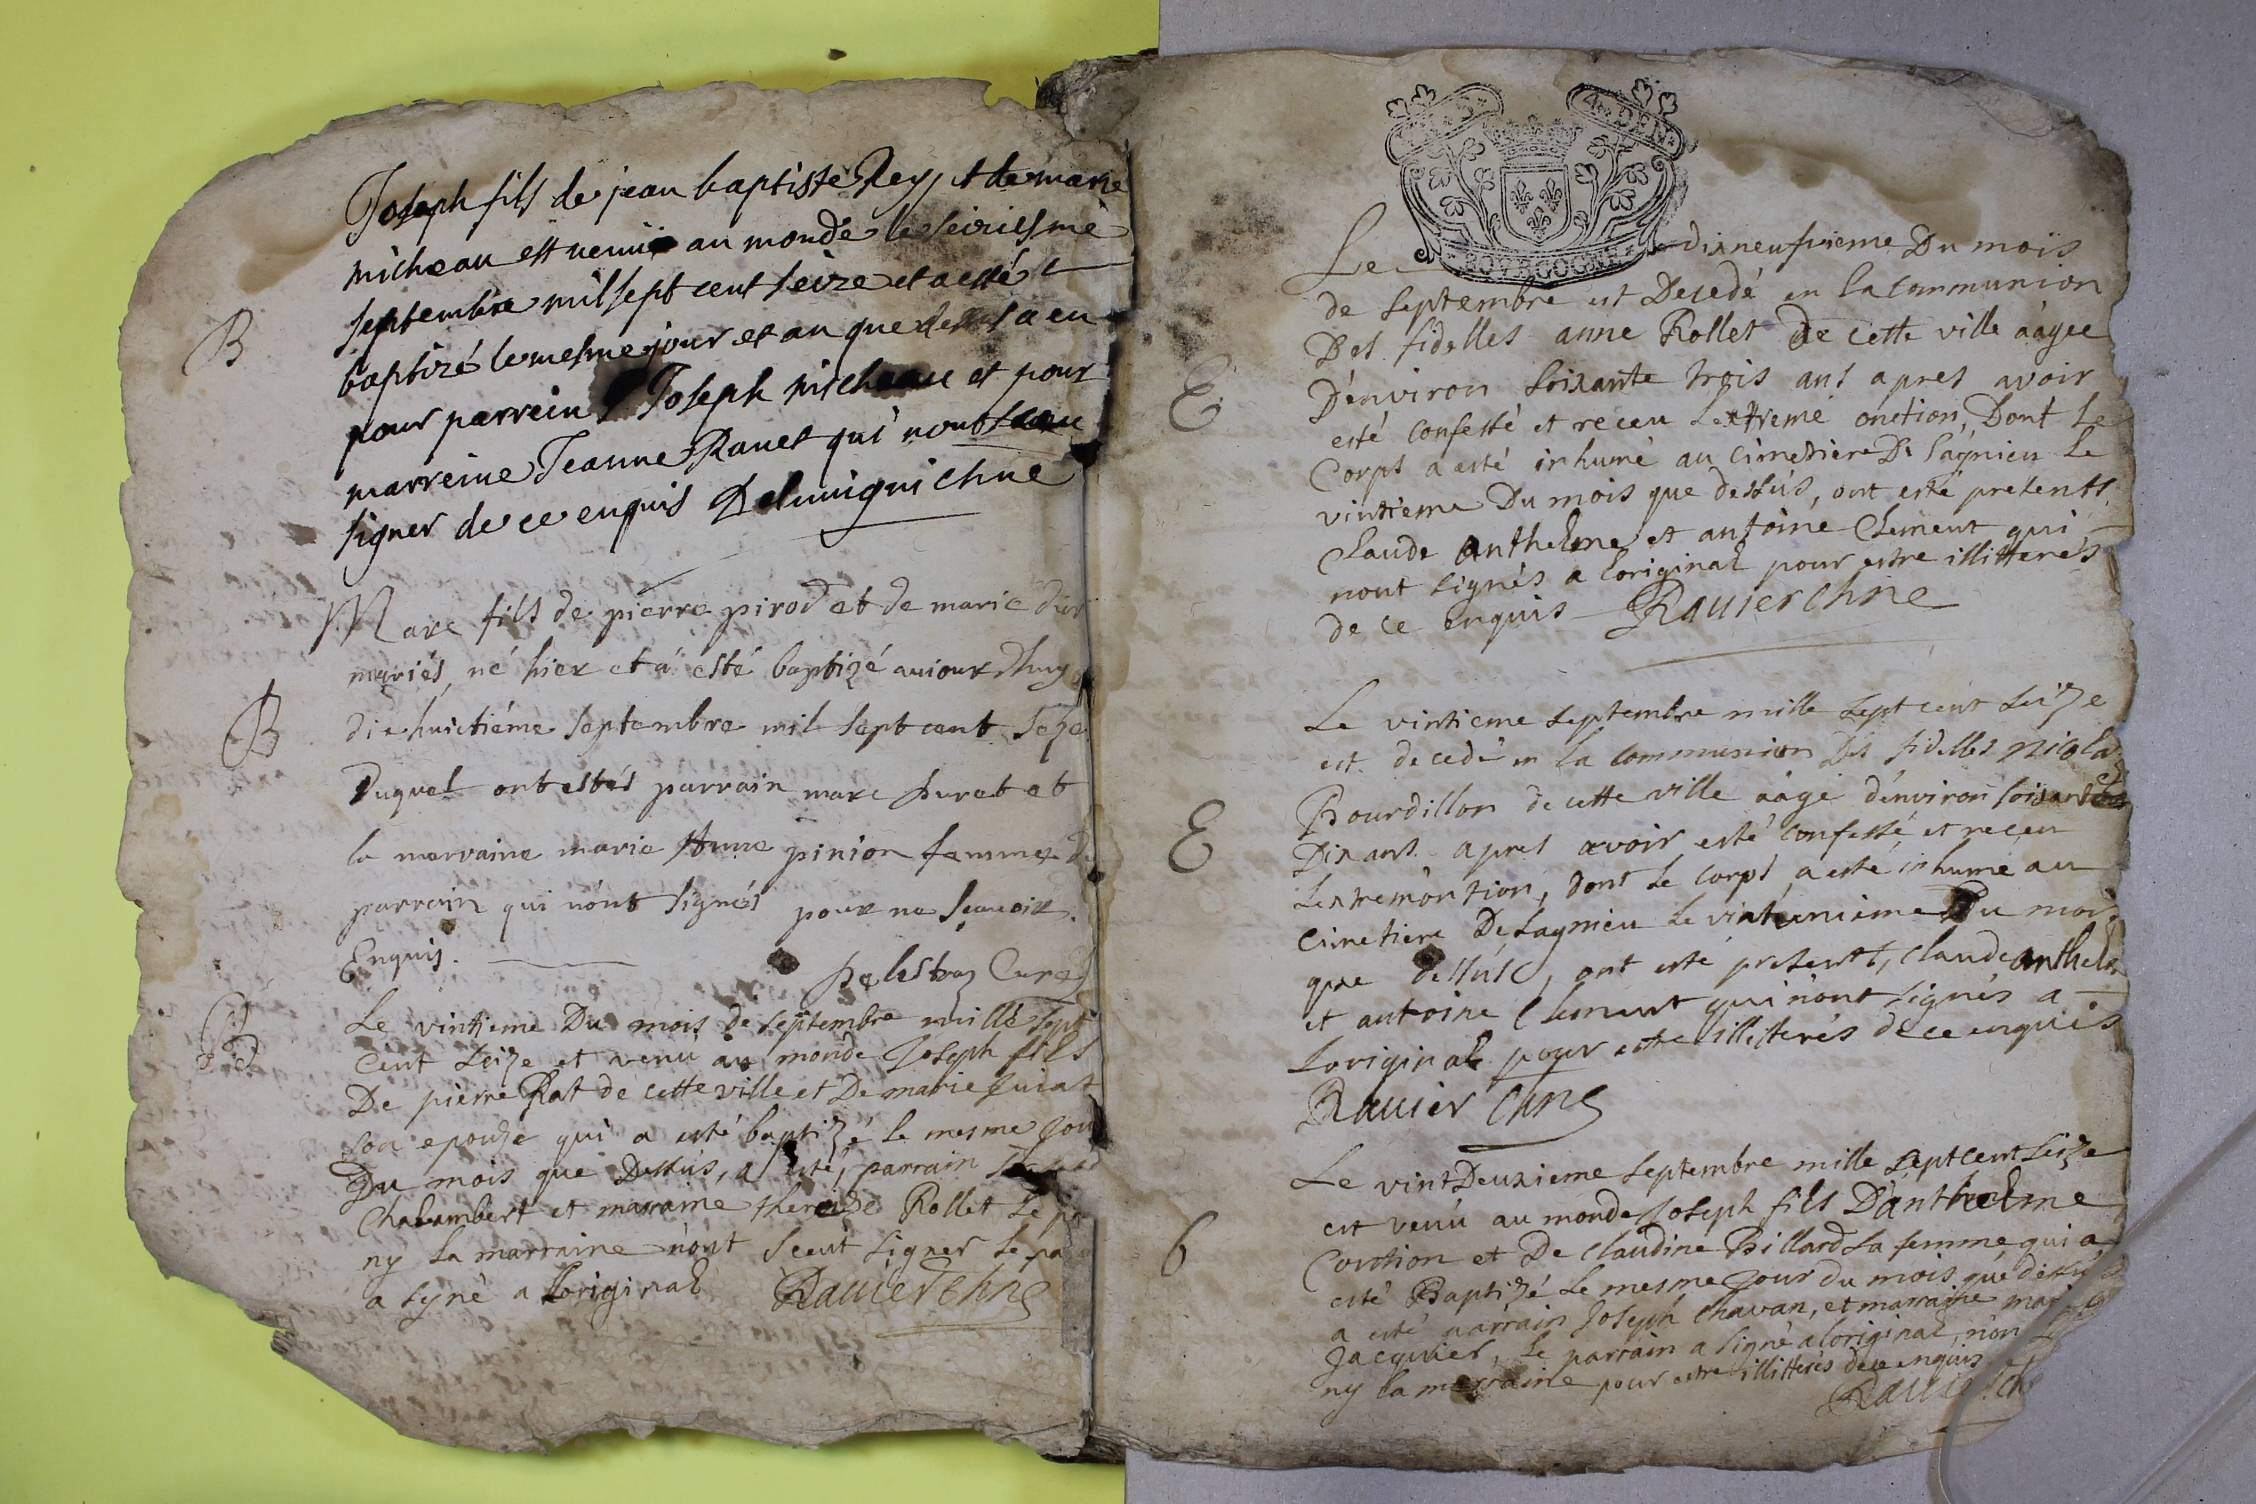 Joseph fils de jean baptiste Rey et de marie
micheau est venu au monde le seiziesme
septembre mil sept cent seize et a esté
B
baptizé le mesme jour et an que dessus a eu
pour parrein Joseph micheau et pour
marreine Jeanne Ravet qui n'ont sceu
signer de ce enquis
Marc fils de pierre pirod et de marie
mariés, né hier et á esté baptizé aujourdhuy
B
dixhuictiéme septembre mil sept cent seze
Duquel ont estés parrain marc puret et
la marraine marie Anne pinion femme
parrain qui n'ont signés pour ne sçavoir
Enquis. Delestraz Curé
B
Le vintieme Du mois de septembre mille sept
cent seize et venu au monde Joseph fils
De pierre Rat de cette ville et De marie
son epouse qui a esté baptizé le mesme jour
Du mois que Dessus, a esté, parrain
Chalambert et marraine thereize Rollet Le
ny la marraine n'ont sceut signer le
a syné a Loriginal Ravier Chne
4 DEN.
BOURGOGNE
Le dixneufvieme Du mois
de septembre est Decedé en la Communion
Des fidelles anne Rollet de cette ville áagee
E
D'environ soixante trois ans apres avoir
esté confessé et receu Lextreme onction, Dont le
Corps a esté inhumé au Cimetiere De Lagnieu Le
vintieme Du mois que dessus, ont esté presents
Claude anthelme et antoine Clement qui
nont signés a Loriginal pour estre illitterés
de ce enquis Ravier Chne
Le vintieme septembre mille sept cent seize
est decedé en la communion Des fidelles nicolas
Bourdillon de cette ville áagé d'environ soixante
E
Dix ans apres avoir esté confessé et receu
Lextremontion, dont le corps a esté inhumé au
Cimetiere De Lagnieu Le vintunieme Du mois
que dessus, ont esté presents, Claude anthelme
et antoine Clement qui n'ont signés a
Loriginal pour estre illitterés de ce enquis
Ravier Chne
Le vintDeuxieme septembre mille septcent seize
est venu au monde Joseph fils D'anthelme
6
Contion et De Claudine Billard sa femme qui a
esté Baptizé Le mesme jour du mois que dessus
a esté parrain Joseph Chavan, et marraine
Jacquier, Le parrain a signé a loriginal, non
ny la marraine pour estre illitterés de ce enquis
Ravier